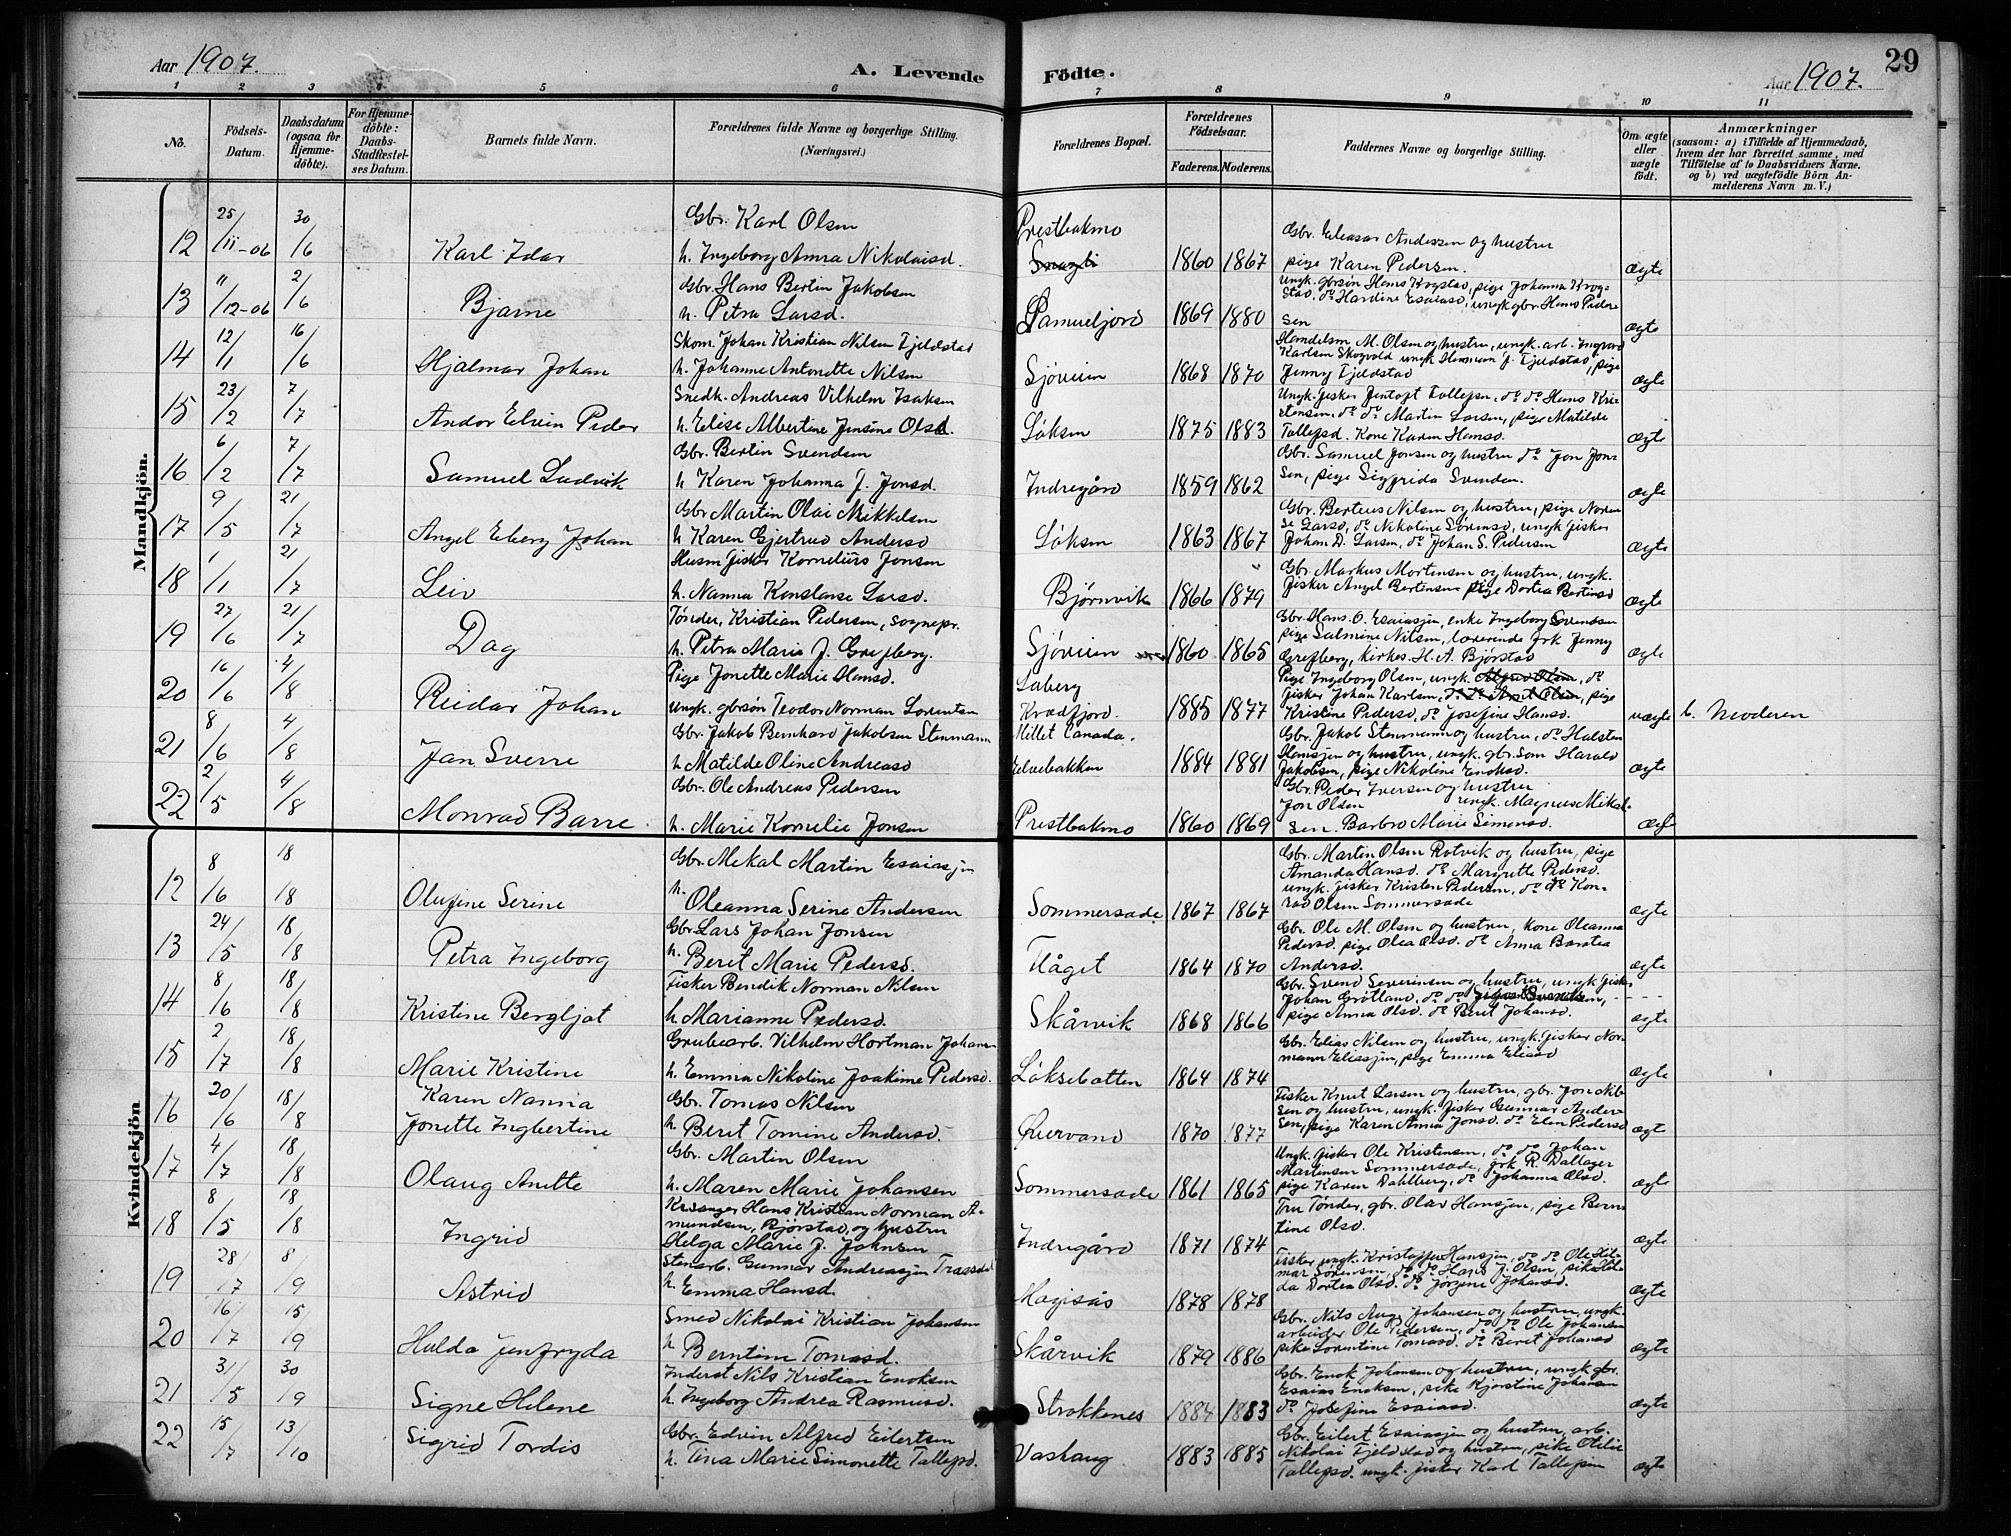 Aar 1907.
A. Levende Födte.
Aar 1907.
29
1 2 3 4 5 6 7 8 9 10 11
No.
Födsels-Datum.
Daabsdatum (ogsaa for Hjemme-döbte).
For Hjemme-döbte: Daabs-Stadfæstel-ses Datum.
Barnets fulde Navn.
Forældrenes fulde Navne og borgerlige Stilling. (Næringsvei.)
Forældrenes Bopæl.
Forældrenes Födselsaar.
Faderens. Moderens.
Faddernes Navne og borgerlige Stilling.
Om ægte eller uægte födt.
Anmærkninger (saasom: a) i Tilfælde af Hjemmedaab, hvem der har forrettet samme, med Tilföielse af to Daabsvidners Navne, og b) ved uægtefödte Börn An-melderens Navn m. V.)
Mandkjön.
12 25/11-06 30/6 Karl Idar
Gbr. Karl Olsen
h. Ingeborg Anna Nikolaisd.
Prestbakmo
1860 1867
Gbr. Eleasar Andersen og hustru
pige Karen Pedersen.
ægte
13 11/12-06 2/6 Bjarne
Gbr. Hans Bertin Jakobsen
h. Petra Larsd.
1869 1880
Ungk. gbrsøn Hans Krogstad, pige Johanna Krog-
stad, do Hardine Esaiasd, ungk. gbr. Hans Peder-
sen
ægte
14 12/1 16/6 Hjalmar Johan
Skom. Johan Kristian Nilsen Fjeldstad
h. Johanne Antonette Nilsen
Sjøveien
1868 1870
Handelsm. M. Olsen og hustru, ungk. arb. Ingvard
Karlsen Skogvold ungk Herman J. Fjeldstad, pige
Jenny Fjeldstad
ægte
15 23/2 7/7 Andor Elvin Peder
Snedk. Andreas Vilhelm Isaksen
h. Elise Albertine Jensine Olsd.
Løksen
1875 1883
Ungk. fisker Jentoft Tollefsen, do do Hans Kris-
tensen, do do Martin Larsen, pige Matilde
Tollefsd. Kone Karen Hansd.
ægte
16 6/2 7/7 Samuel Ludvik
Gbr. Bertin Svendsen
h Karen Johanna J. Jonsd.
Indregård
1859 1862
Gbr. Samuel Jonsen og hustru do Jon Jon-
sen, pige Sigfrida Svendsen.
ægte
17 9/5 21/7 Angel Eberg Johan
Gbr Martin Olai Mikkelsen
h Karen Gjertrud Andersd
Løksen
1863 1867
Gbr. Berteus Nilsen og hustru, pige Noren-
se Larsd, do Nikoline Sørensd, ungk fisker
Johan D. Larsen, do Johan S. Pedersen
ægte
18 1/1 21/7 Leiv
Husm fisker Kornelius Jonsen
h. Nanna Konstanse Larsd.
Bjørnvik
1866 1879
Gbr. Markus Mortensen og hustru, ungk.
fisker Angel Bertensen pige Dortea Bertensd
ægte
19 27/6 21/7 Dag
Tønder, Kristian Pedersen, sognepr.
h. Petra Marie J. Grefberg.
Sjøveien
1860 1865
Gbr. Hans O. Esaiassen, enke Ingeborg Svendsen
pige Salmine Nilsen, lærerinde frk Jenny
Grefberg, kirkes. H. A. Bjørstad
ægte
20 16/6 4/8 Reidar Johan
Pige Jonette Marie Hansd.
Ungk. gbrsøn Teodor Norman Lorentsen
Laberg
Kvædfjord.
1885 1877
Pige Ingeborg Olsen, ungk. Alfred Olsen, do
fisker Johan Karlsen, do do Olsen, pige
Kristine Pedersd, do Josefine Hansd.
uægte b. Moderen
21 8/6 4/8 Jan Sverre
Gbr. Jakob Bernhard Jakobsen Stenmann
h Matilde Oline Andreasd
Millet Canada.
Elvebakken
1884 1881
Gbr. Jakob Stenmann og hustru, do Halsten
Hanssen og hustru, ungk. gbr.søn Harald
Jakobsen, pige Nikoline Enoksd.
ægte
22 2/5 4/8 Monrad Barre
Gbr. Ole Andreas Pedersen
h. Marie Kornelie Jonsen
Prestbakmo
1860 1869
Gbr. Peder Iversen og hustru
Jon Olsen ungk. Magnus Mikal-
sen. Barbro Marie Simonsd.
ægte
Kvindekjön.
12 8/6 18/8 Olufine Serine
Gbr. Mekal Martin Esaiassen
h. Oleanna Serine Andersen
Sommersæde
1867 1867
Gbr. Martin Olsen Rotvik og hustru, pige
Amanda Hansd. do Margrette Pedersd.
ungk. fisker Kristen Pedersen, do do Kon-
rad Olsen Sommersæde
ægte
13 24/5 18/8 Petra Ingeborg
Gbr. Lars Johan Jonsen
h. Beret Marie Pedersd.
Flåget
1864 1870
Gbr. Ole M. Olsen og hustru, kone Oleanna
Pedersd. pige Olea Olsd. do Anna Barstea
Andersd.
ægte
14 8/6 18/8 Kristine Bergljot
Fisker Bendik Norman Nilsen
h Marianne Pedersd.
Skårvik
1868 1866
Gbr. Svend Severinsen og hustru, ungk fisker
Johan Grøtland, do do
pige Anna Olsd. do Beret Johansd.
ægte
15 2/7 18/8 Marie Kristine
Grubearb. Vilhelm Hartman Johansen
h. Emma Nikoline Joakime Pedersd.
Løksebotten
1864 1874
Gbr. Elias Nilsen og hustru, ungk. fisker Nor-
mann Eliassen, pige Emma Eliasd
ægte
16 20/6 18/8 Karen Nanna
Jonette Ingbertine
Gbr. Tomas Nilsen
h. Beret Tomine Andersd.
Øvervand
1870 1877
Fisker Knut Larsen og hustru, gbr. Jon Nil-
sen og hustru, ungk. fisker Gunnar Ander-
sen, pige Karen Anna Jonsd. do Elen Pedersd
ægte
17 4/7 18/8 Olaug Anette
Gbr. Martin Olsen
h. Maren Marie Johansen
Sommersæde
1861 1865
Ungk. fisker Ole Kristensen, do do Johan
Martinsen Sommersæde, frk R. Dallager
pige Karen Dahlberg, do Johanna Olsd.
ægte
18 8/5 18/8 Ingrid
Kirsanger Hans Kristian Norman A-
mundsen, Bjørstad, og hustru
Helga Marie J. Johnsen
Indregård
1871 1874
Fru Tønder, gbr. Olav Hanssen, pige Bern-
tine Olsd.
ægte
19 28/7 8/9 Astrid
Stenarb. Gunnar Andreassen
h. Emma Hansd.
1878 1878
Fisker ungk. Kristoffer Hanssen, do do Ole Hil-
mar Sørensen, do do Hans J. Olsen, pike Hil-
da Dortea Olsd. do Jørgine Johansd.
ægte
20 16/7 15/9 Hulda Jenfryda
Smed Nikolai Kristian Johansen
h Berntine Tomasd.
Skårvik
1879 1886
Gbr. Nils Aug. Johansen og hustru, ungk.
arbeider Ole Pedersen, do do Ole Johansen
pike Lorentine Tomasd. do Beret Johansd
ægte
21 31/5 30/9 Signe Helene
Inderst Nils Kristian Enoksen
h. Ingeborg Andrea Rasmusd.
Strokkenes
1884 1883
Gbr. Enok Johansen og hustru, ungk. gbr.
Esaias Enoksen, pike Kjerstine Johansen
do Josefine Esaiasd.
ægte
22 15/7 13/10 Sigrid Tordis
Gbr. Edvin Alfred Eilertsen
h. Tina Marie Simonette Tollefsd.
Vashaug
1883 1885
Gbr. Eilert Esaiassen og hustru, arb.
Nikolai Fjeldstad og hustru, pike Otilie
Tollefsd. ungk. fisker Karl Tollefsen
ægte